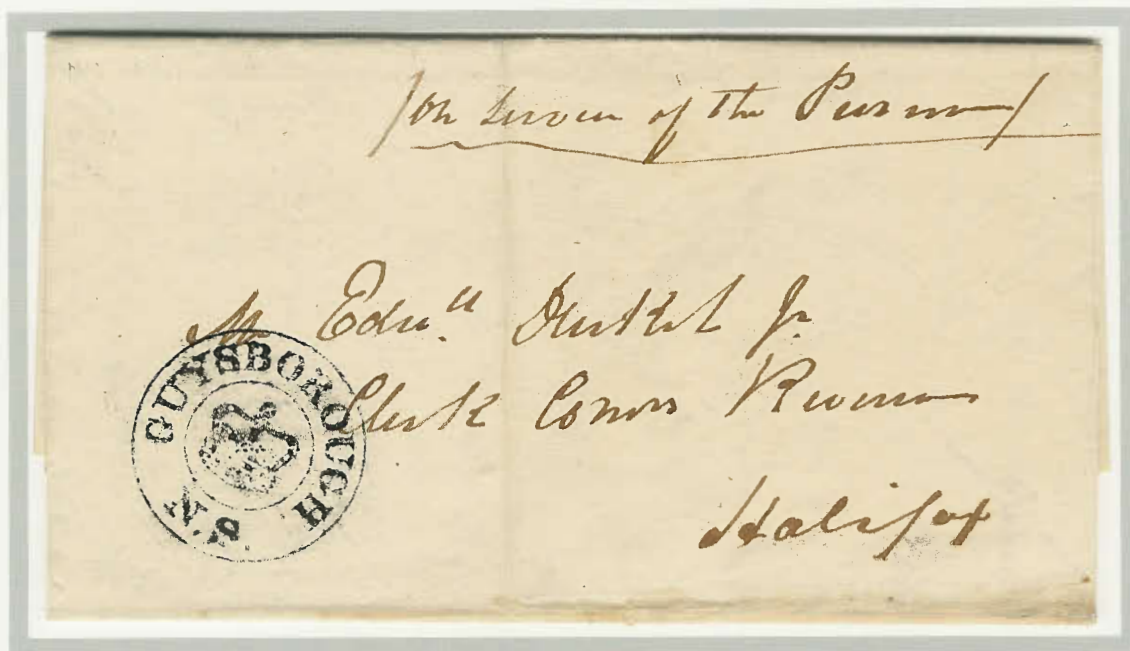 /on Service of the Revenue/
Mr Edwd. Jr
Clerk Comrs Revenue
Halifax
GUYSBOROUGH N.S